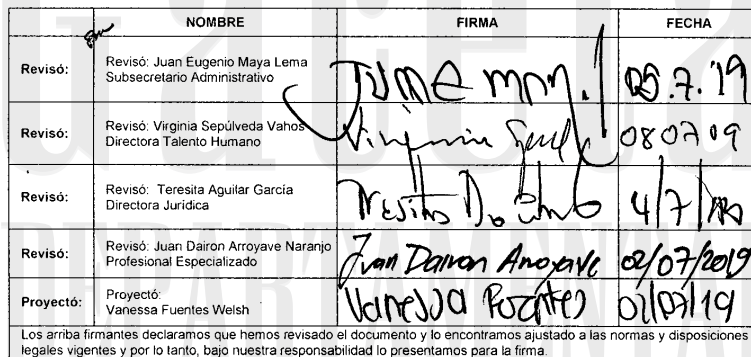 NOMBRE FIRMA FECHA
Revisó: Revisó: Juan Eugenio Maya Lema
Subsecretario Administrativo
Revisó: Revisó: Virginia Sepúlveda Vahos 080719
Directora Talento Humano
Revisó: Revisó: Teresita Aguilar García 4/7/
Directora Jurídica
Revisó: Revisó: Juan Dairon Arroyave Naranjo Juan Dairon Arroyave 02/07/2019
Profesional Especializado
Proyectó: Proyectó: Vanessa Fuentes 02/07/19
Vanessa Fuentes Welsh
Los arriba firmantes declaramos que hemos revisado el documento y lo encontramos ajustado a las normas y disposiciones
legales vigentes y por lo tanto, bajo nuestra responsabilidad lo presentamos para la firma.